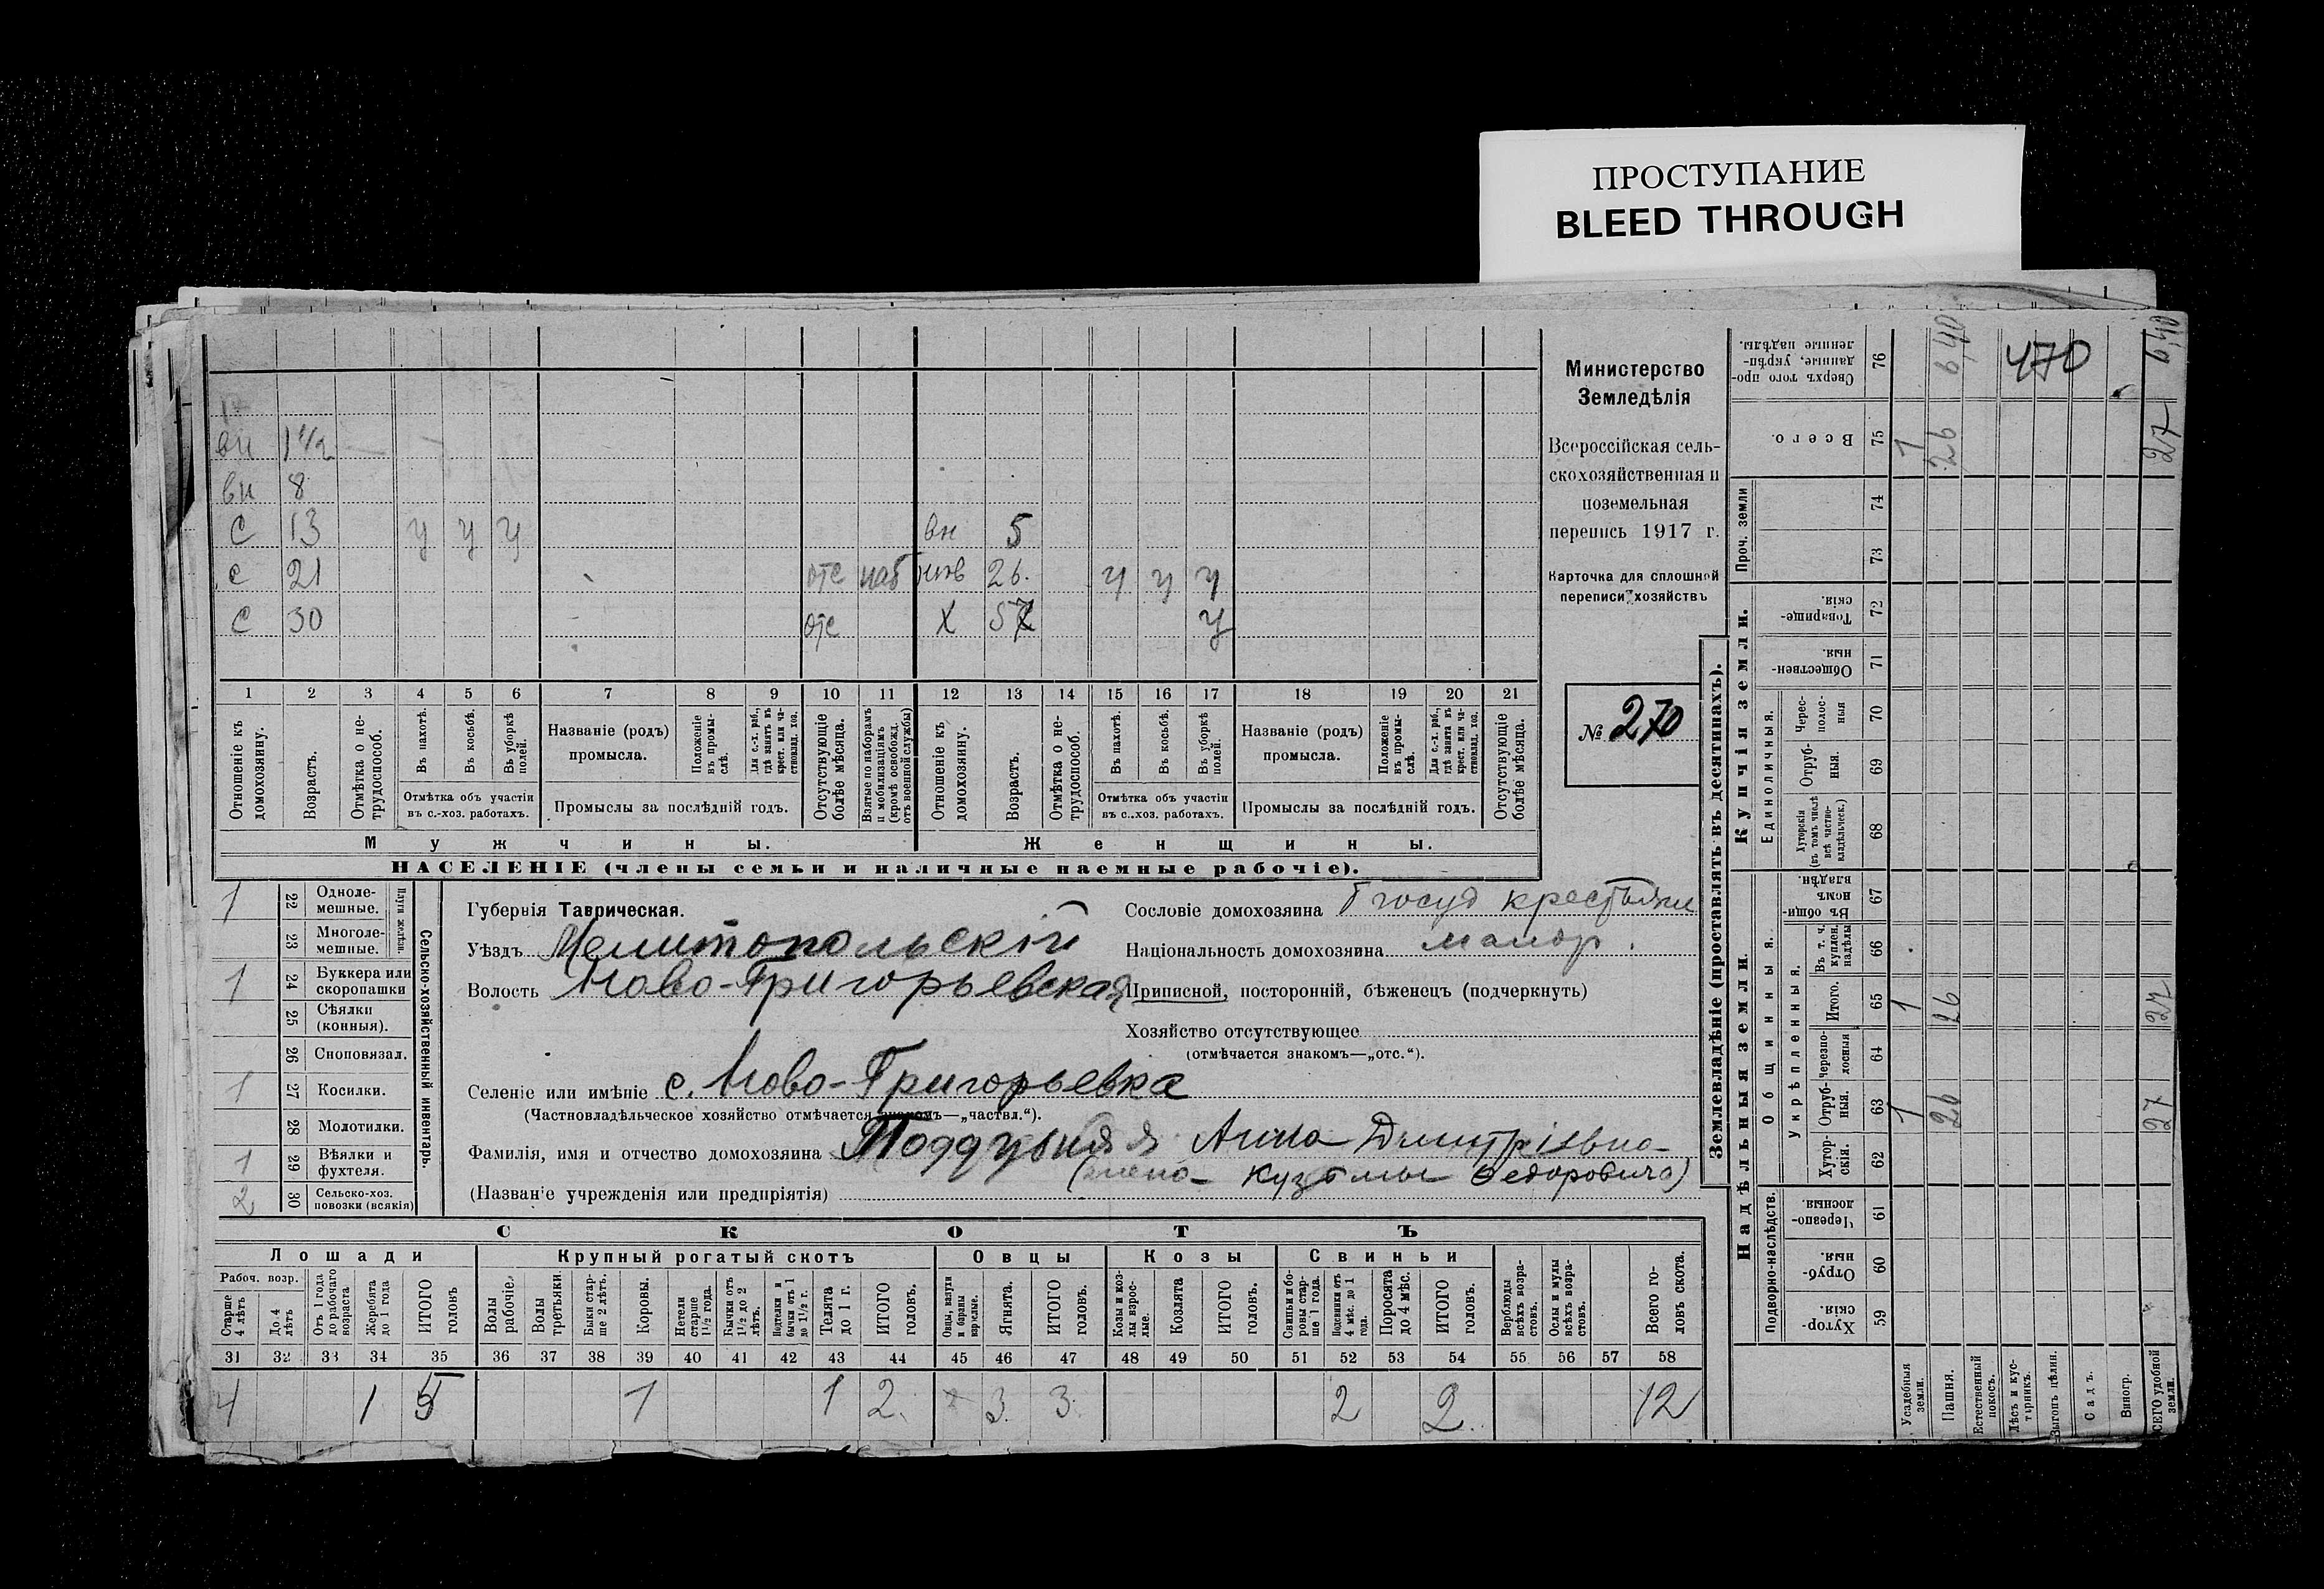 ПРОСТУПАНИЕ
BLEED THROUGH
вн 1 1/2
вн 8
с 13 у у у вн 5
с 21 отс наб 26. у у у
с 30 отс х 57 у
1 2 3 4 5 6 7 8 9 10 11 12 13 14 15 16 17 18 19 20 21
Отношеніе къ домохозяину.
Возрастъ.
Отмѣтка о нетрудоспособ.
Въ пахотѣ.
Въ косьбѣ.
Въ уборкѣ полей.
Отмѣтка объ участіи въ с.-хоз. работахъ.
Названіе (родъ) промысла.
Положеніе въ промыслѣ.
Для с.-х. раб., гдѣ занятъ въ крест. или частновлад. хоз.
Промыслы за послѣдній годъ.
Отсутствующіе болѣе мѣсяца.
Взятые по наборамъ и мобилизаціямъ (кромѣ освобожд. отъ военной службы)
Отношеніе къ домохозяину.
Возрастъ.
Отмѣтка о нетрудоспособ.
Въ пахотѣ.
Въ косьбѣ.
Въ уборкѣ полей.
Отмѣтка объ участіи въ с.-хоз. работахъ.
Названіе (родъ) промысла.
Положеніе въ промыслѣ.
Для с.-х. раб., гдѣ занята въ крест. или частновлад. хоз.
Промыслы за послѣдній годъ.
Отсутствующіе болѣе мѣсяца.
Мужчины. Женщины.
НАСЕЛЕНІЕ (члены семьи и наличные наемные рабочіе).
Министерство
Земледѣлія
Всероссійская сель-
скохозяйственная и
поземельная
перепись 1917 г.
Карточка для сплошной
переписи хозяйствъ
№ 270
Сельско-хозяйственный инвентарь.
Плуги желѣзн.
1 22 Одноле-мешные.
23 Многоле-мешные.
1 24 Буккера или скоропашки
25 Сѣялки (конныя).
26 Сноповязал.
1 27 Косилки.
28 Молотилки.
1 29 Вѣялки и фухтеля.
2 30 Сельско-хоз. повозки (всякія)
Губернія Таврическая.
Уѣздъ Мелитопольскій
Волость Ново-Григорьевская
Селеніе или имѣніе с. Ново-Григорьевка
(Частновладѣльческое хозяйство отмѣчается знакомъ—„частвл.“).
Фамилія, имя и отчество домохозяина Анна Дмитріевна
Кузьмы Федоровича)
(Названіе учрежденія или предпріятія)
Сословіе домохозяина госуд крестьяни
Національность домохозяина малор.
Приписной, посторонній, бѣженецъ (подчеркнуть)
Хозяйство отсутствующее
(отмѣчается знакомъ—„отс.“).
СКОТЪ
Лошади Крупный рогатый скотъ Овцы Козы Свиньи
Рабоч. возр.
Старше 4 лѣтъ
До 4 лѣтъ
Отъ 1 года до рабочаго возраста
Жеребята до 1 года
ИТОГО головъ
Волы рабочіе.
Волы третьяки.
Быки старше 2 лѣтъ.
Коровы.
Нетели старше 1 1/2 года.
Бычки отъ 1 1/2 до 2 лѣтъ.
Подтелки и бычки отъ 1 до 1 1/2 г.
Телята до 1 г.
ИТОГО головъ.
Овцы, валухи и бараны взрослые.
Ягнята.
ИТОГО головъ.
Козы и козлы взрослые.
Козлята
ИТОГО головъ.
Свиньи боровы старше 1 года.
Подсвинки отъ 4 мѣс. до 1 года.
Поросята до 4 мѣс.
ИТОГО головъ.
Верблюды всѣхъ возрастовъ.
Ослы и мулы всѣхъ возрастовъ.
Всего головъ скота.
31 32 33 34 35 36 37 38 39 40 41 42 43 44 45 46 47 48 49 50 51 52 53 54 55 56 57 58
4 1 5 1 1 2. 3. 3. 2 2. 12
Землевладѣніе (проставлять въ десятинахъ).
Надѣльныя земли. Купчія земли.
Сверхъ того проданные, укрѣпленные надѣлы. 76 6,40 470 6,40
Всего. 75 1 26 27
Проч. земли 74
73
Товарищескія. 72
Общественныя. 71
Единоличныя.
Чересполосныя 70
Отрубныя. 69
Хуторскія (въ томъ числѣ всѣ частновладѣльческ.) 68
Общинныя.
Въ общинномъ владѣн. 67
Укрѣпленныя.
Въ т. ч. куплен. надѣлы 66
Итого. 65 1 26 27
Черезполосныя 64
Отрубныя. 63 1 26 27
Хуторскія. 62
Подворно-наслѣдств.
Черезполосныя. 61
Отрубныя. 60
Хуторскія. 59
Усадебныя земли.
Пашня.
Естественный покосъ.
Лѣсъ и кустарникъ.
Выгонъ цѣлин.
Садъ.
Виногр.
ВСЕГО удобной земли.